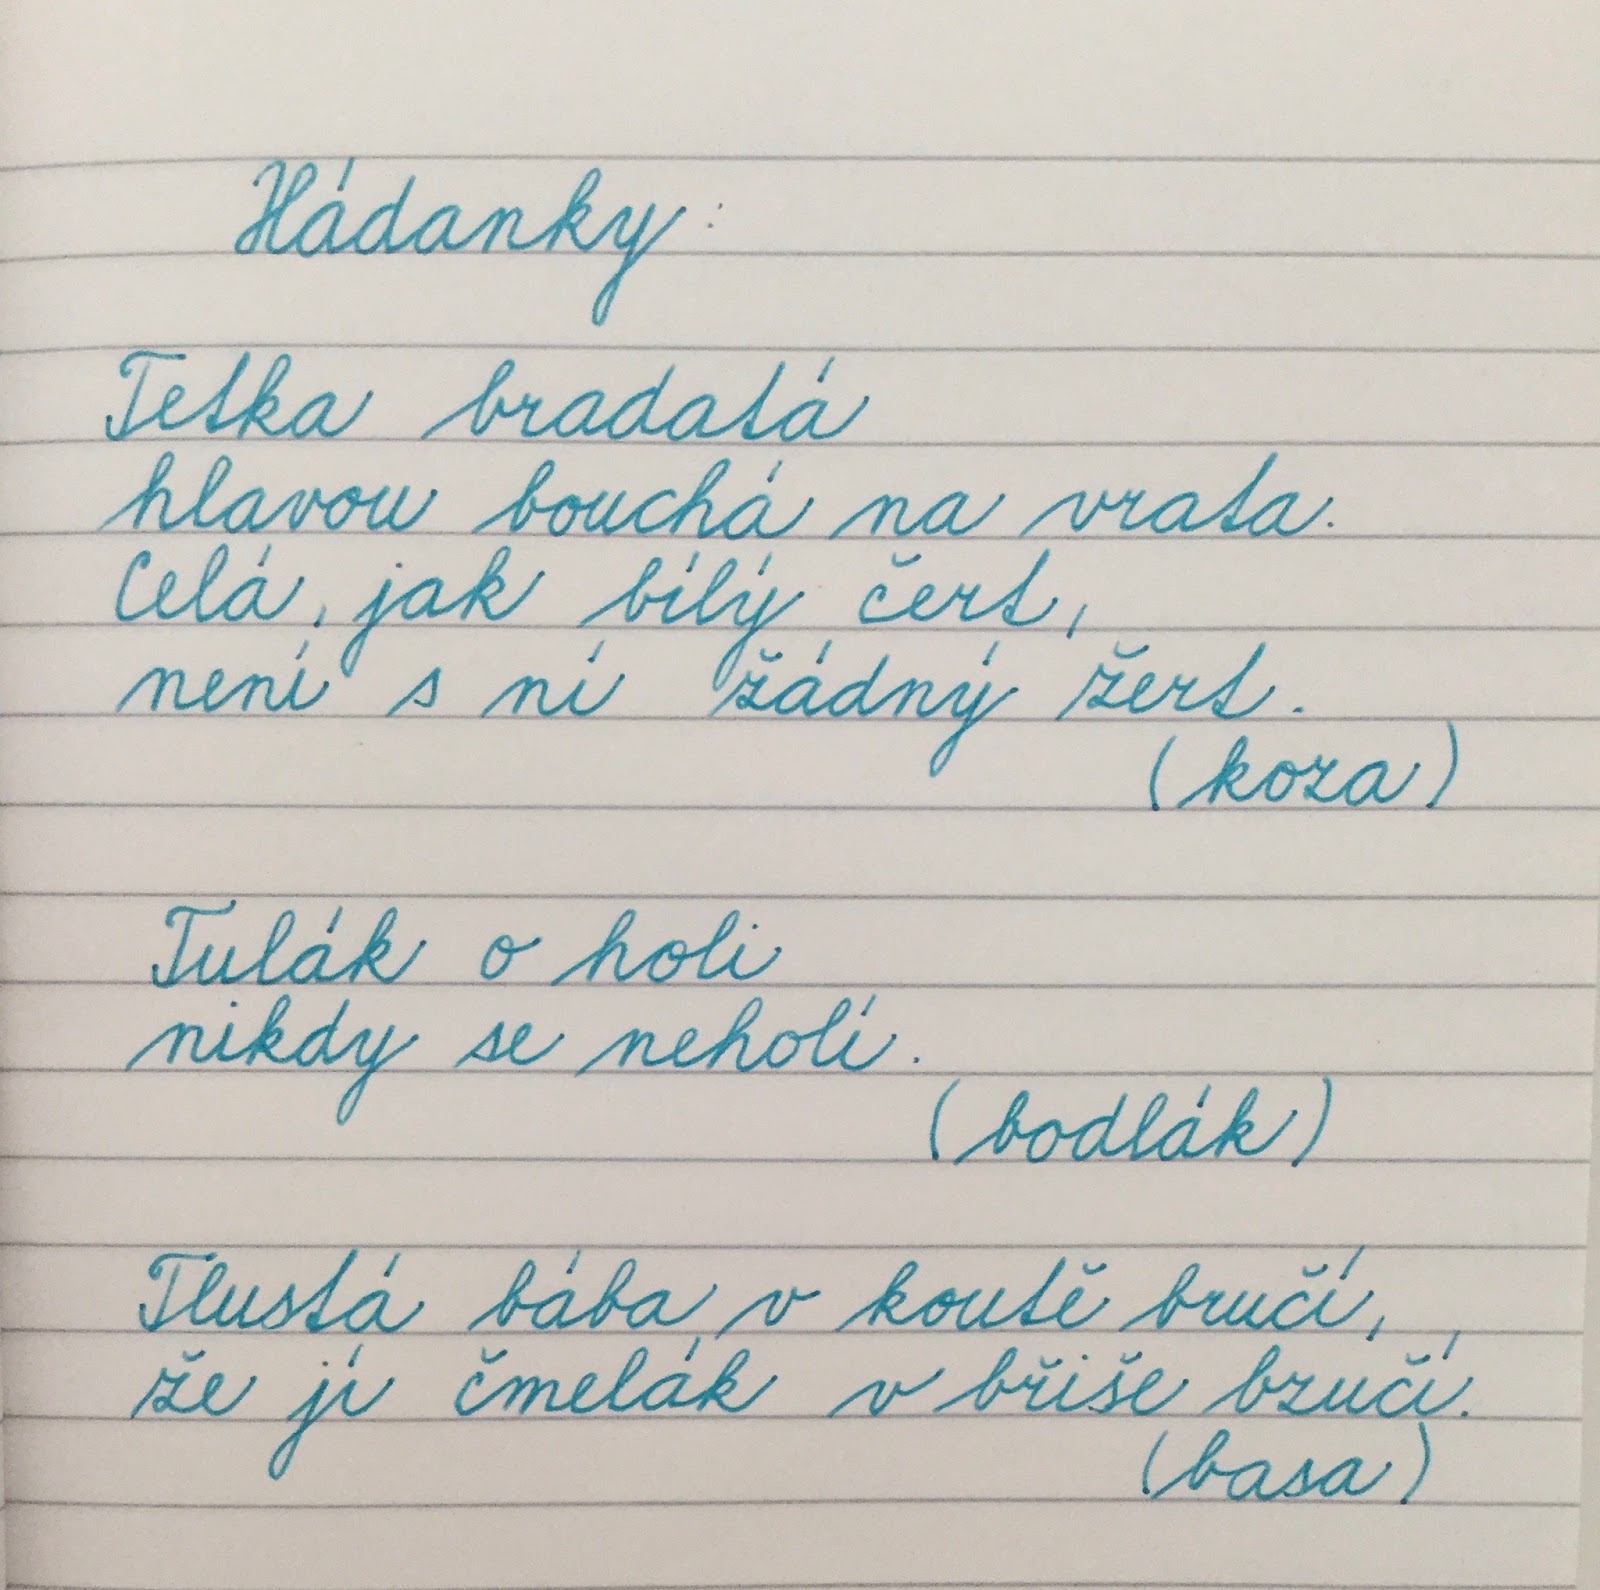 Hádanky:
Tetka bradatá
hlavou bouchá na vrata.
Celá, jak bílý čert,
není s ní žádný žert.
(koza)
Tulák o holi
nikdy se neholí.
(bodlák)
Tlustá bába v koutě bručí,
že jí čmelák v břiše bzučí.
(basa)